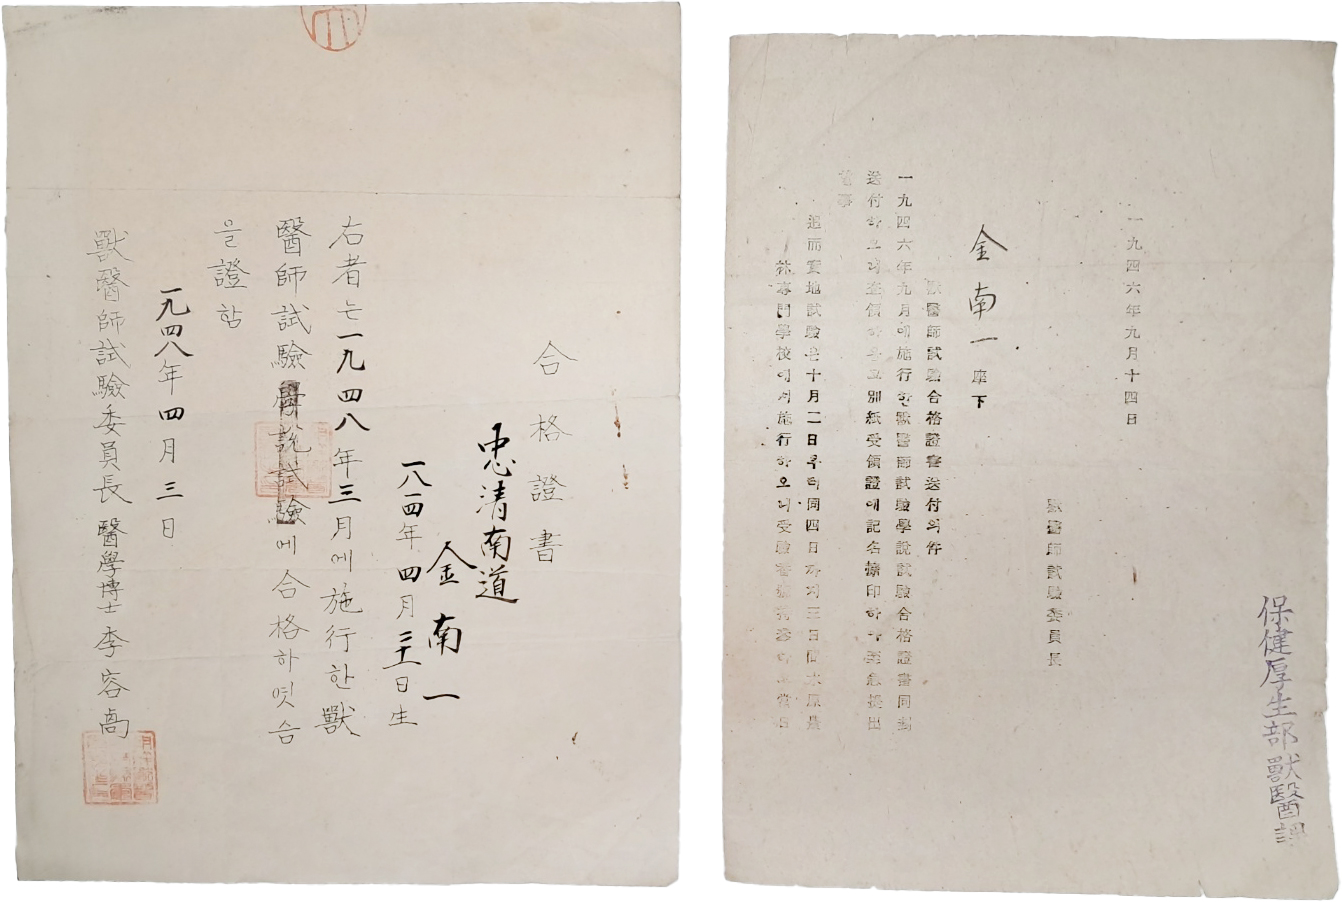 合格證書
忠淸南道
金南一
一八一四年四月二十三日生
右者는一九四八年三月에施行한獸
醫師試驗學說試驗에合格하엿슴
을證함
一九四八年四月三日
獸醫師試驗委員長 醫學博士 李容卨
保健厚生部獸醫課
一九四六年九月十四日
獸醫師試驗委員長
金南一 座下
獸醫師試驗合格證書送付의件
一九四六年九月에施行한獸醫師試驗學說試驗合格證書同封
送付하오니査領하음고別紙受領證에記名捺印하야至急提出
追而實地試驗은十月二日부터同四日까지三日間水原農
林專門學校에서施行하오니受驗